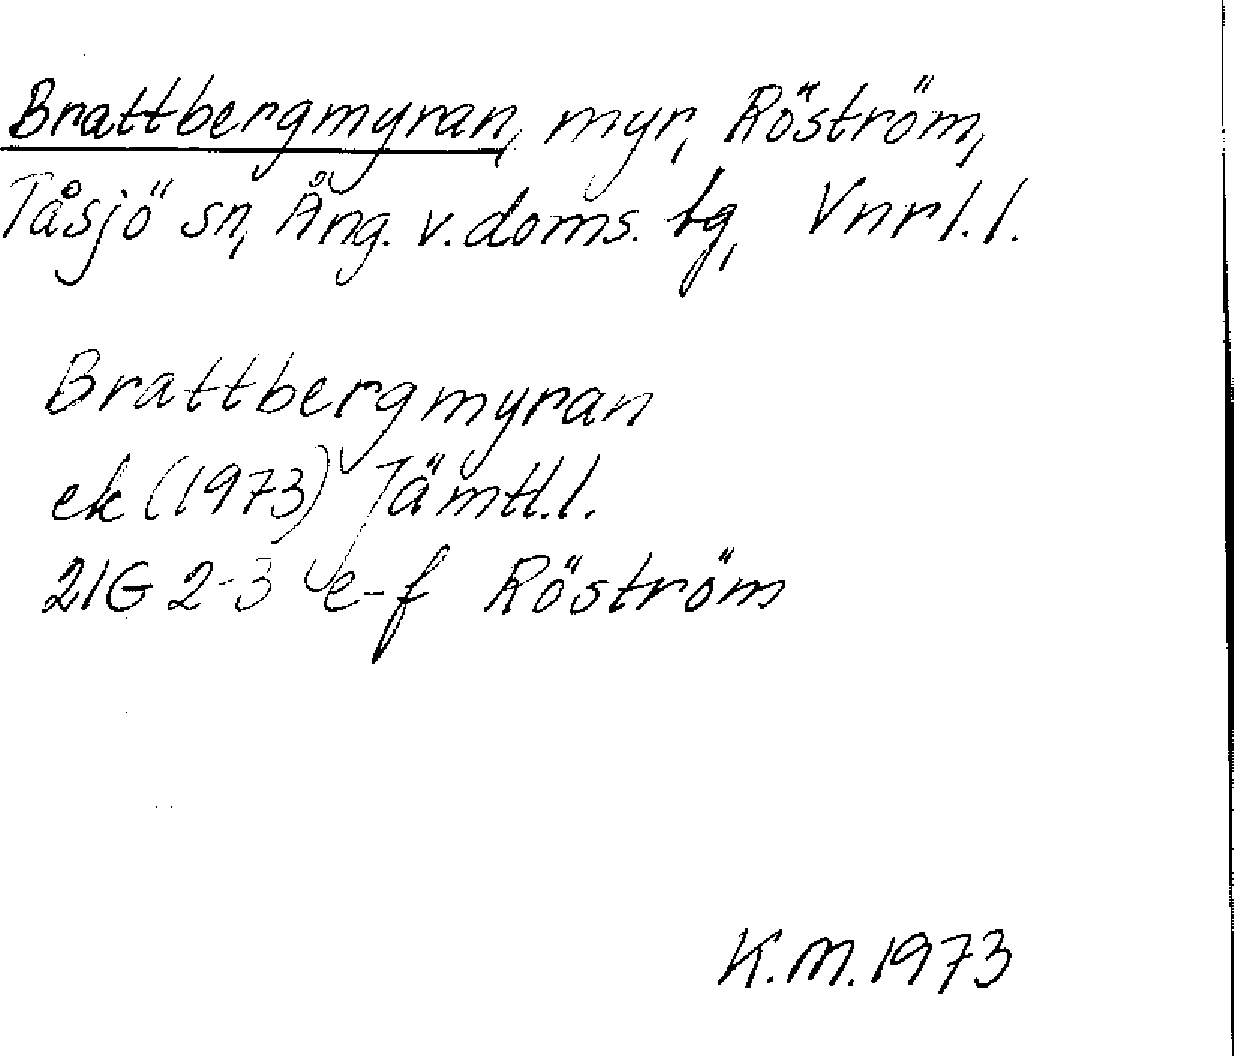 Brattbergmyran, myr, Röström,
Tåsjö sn, Ång. v. doms. tg, Vnrl.l.
Brattbergmyran
ek (1973) Jämtl.l.
21G 2-3 e-f Röström
K.M. 1973